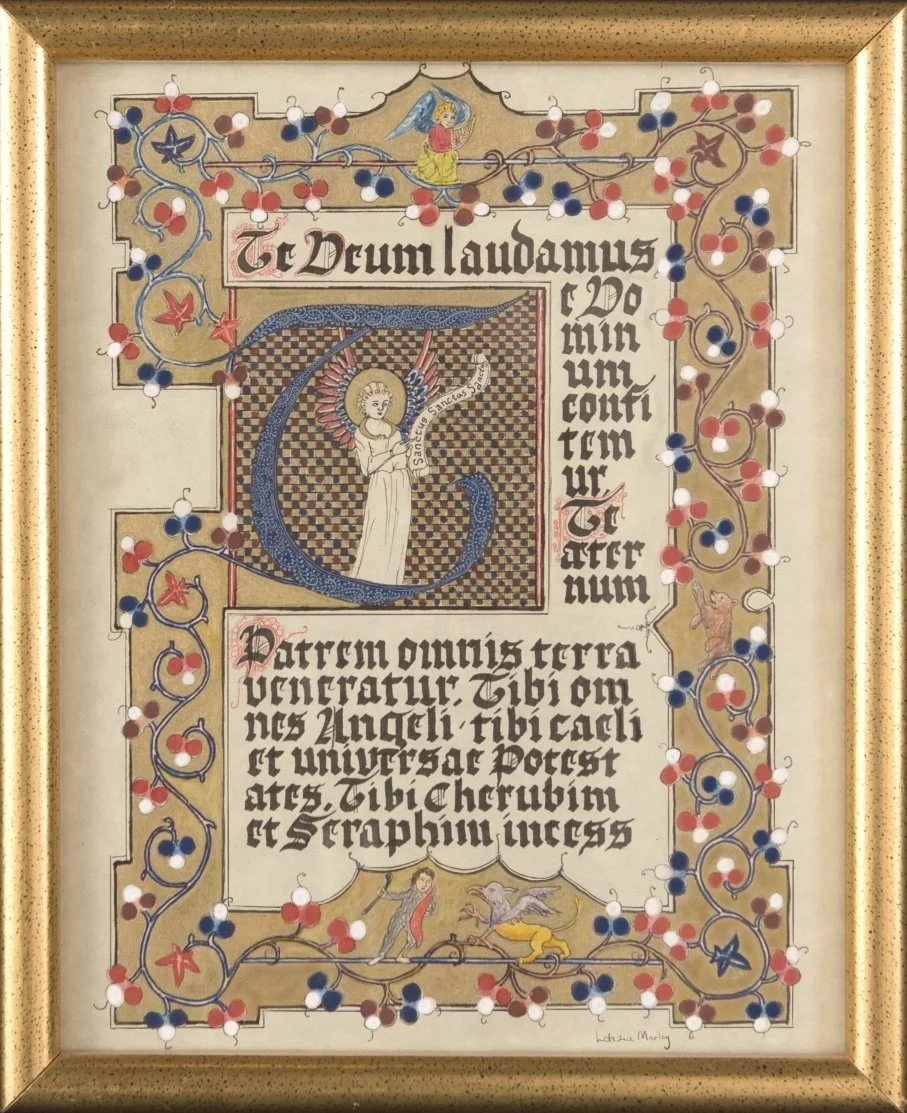 Te Deum laudamus
e Do
min
um
confi
tem
ur.
Te
ater
num
Sanctus Sanctus Sanctus
Patrem omnis terra
veneratur. Tibi om
nes Angeli · tibi caeli
et universae Potest
ates. Tibi Cherubim
et Seraphim incess
Morley